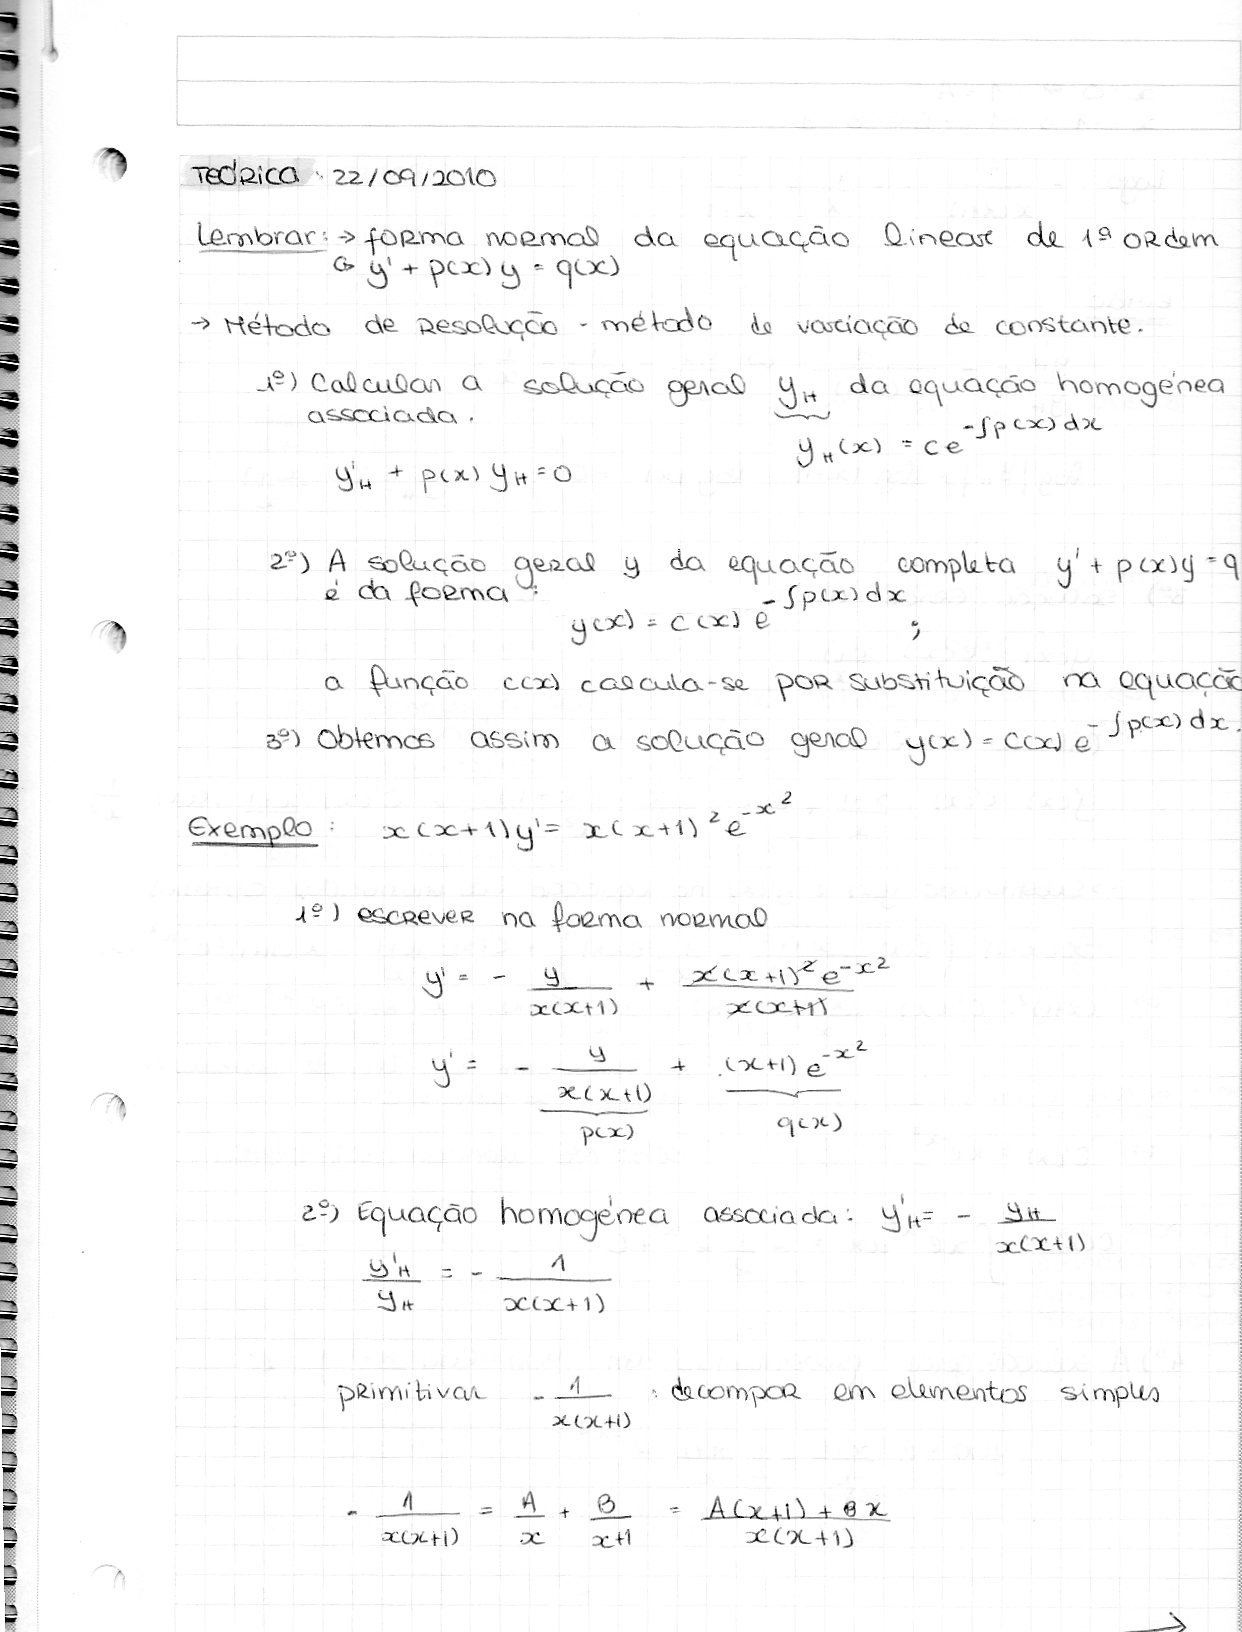 Teórica 22/09/2010
Lembrar: → forma normal da equação linear de 1ª ordem
↳ y' + p(x) y = q(x)
→ Método de Resolução - método de variação de constante.
1º) Calcular a solução geral y_H da equação homogénea
associada.
y_H(x) = c e^{-∫p(x)dx}
y'_H + p(x) y_H = 0
2º) A solução geral y da equação completa y' + p(x)y = q
é da forma:
y(x) = c(x) e^{-∫p(x)dx};
a função c(x) calcula-se por substituição na equação
3º) Obtemos assim a solução geral y(x) = c(x) e^{-∫p(x)dx}.
Exemplo: x(x+1)y' = x(x+1)² e^{-x²}
1º) escrever na forma normal
y' = - y/(x(x+1)) + x(x+1)² e^{-x²}/(x(x+1))
y' = - y/(x(x+1)) + (x+1) e^{-x²}
p(x) q(x)
2º) Equação homogénea associada: y'_H = - y_H/(x(x+1))
y'_H/y_H = - 1/(x(x+1))
primitivar - 1/(x(x+1)) : decompor em elementos simples
- 1/(x(x+1)) = A/x + B/(x+1) = (A(x+1) + Bx)/(x(x+1))
→